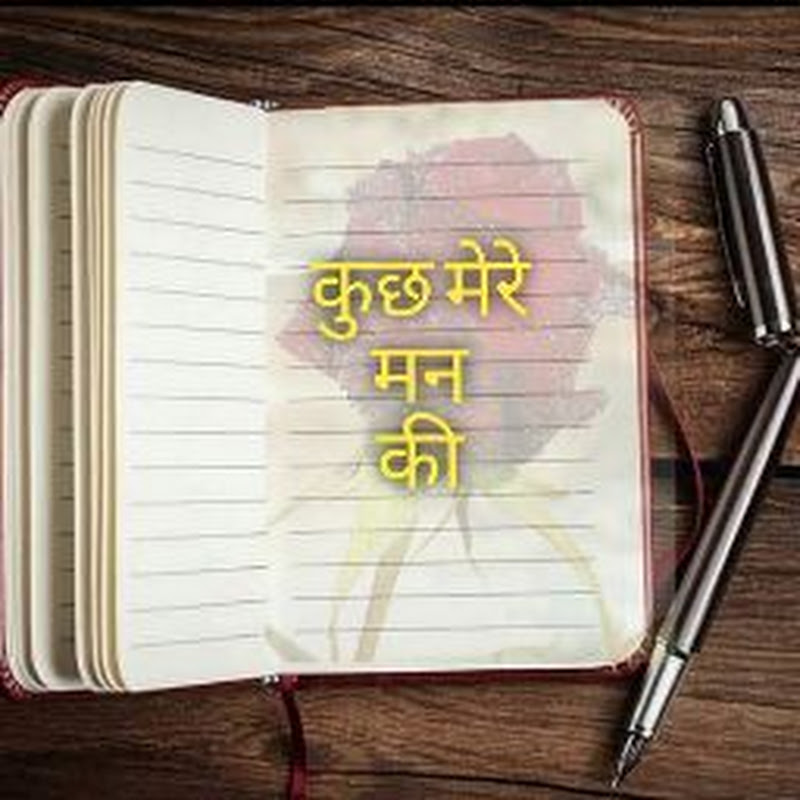 कुछ मेरे
मन
की